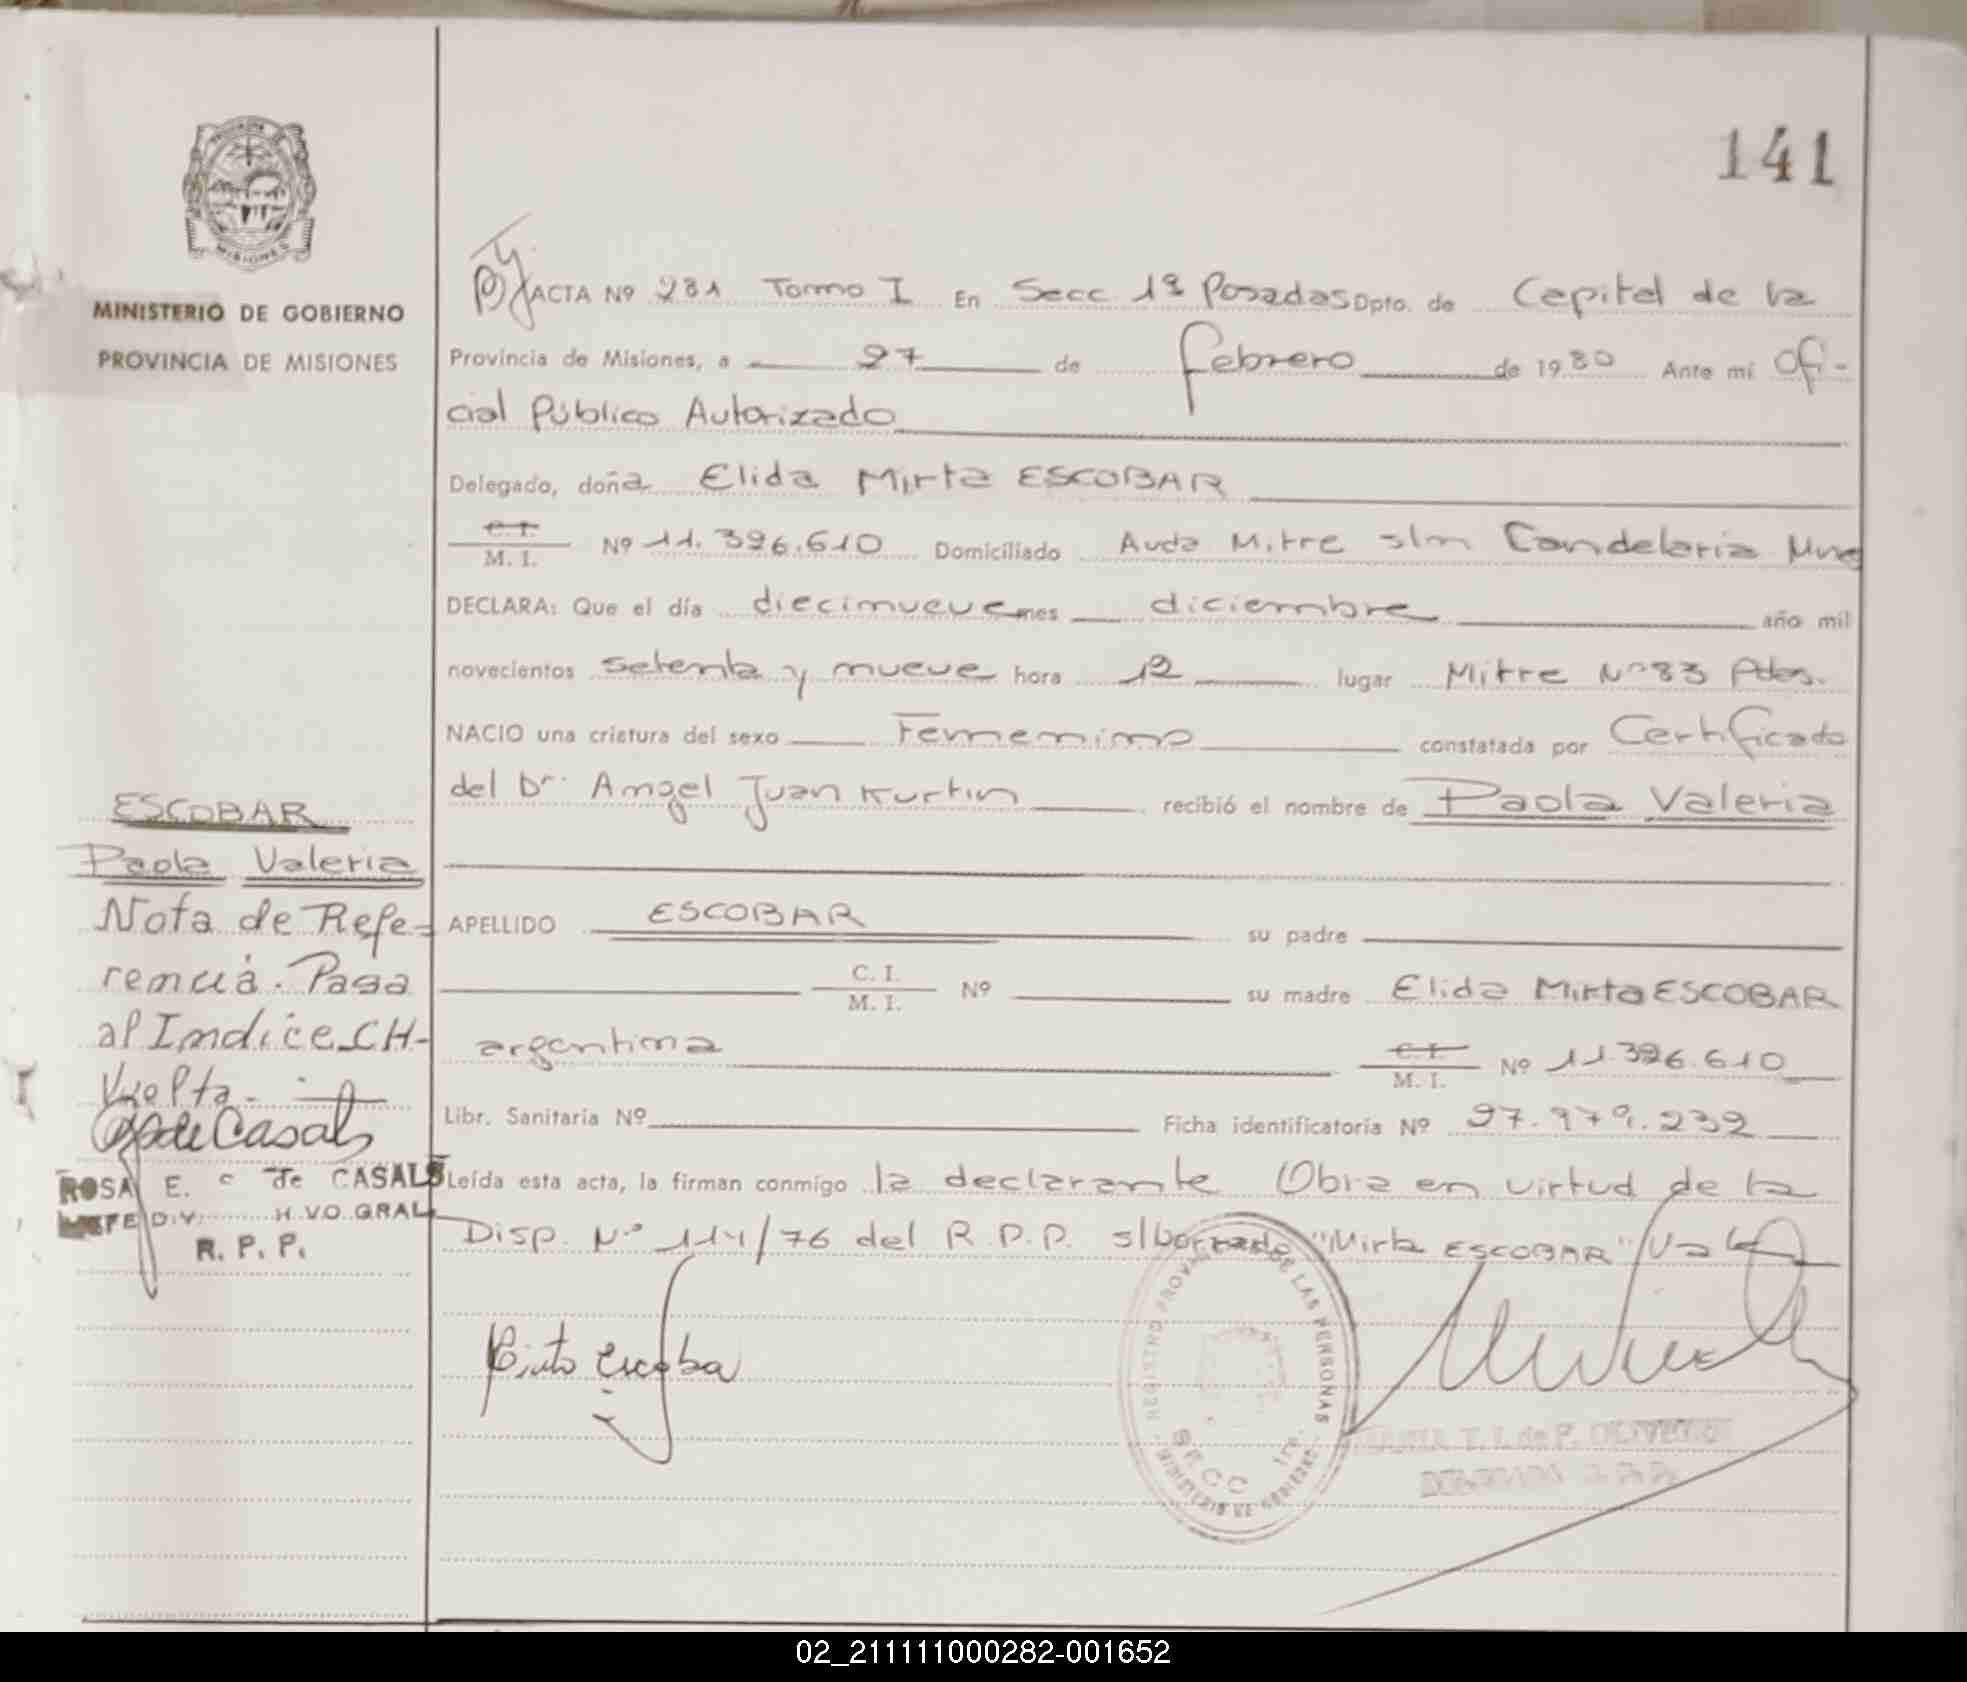 141
MINISTERIO DE GOBIERNO
PROVINCIA DE MISIONES
ACTA Nº 281 Tomo I En Secc 1ª Posadas Dpto. de Capital de la
Provincia de Misiones, a 27 de febrero de 1980 Ante mi Ofi-
cial Público Autorizado
Delegado, doña Elida Mirta ESCOBAR
C. I.
M. I. Nº 11.396.610 Domiciliado Avda Mitre s/n Candelaria Mnes
DECLARA: Que el día diecinueve mes diciembre año mil
novecientos setenta y nueve hora 12 lugar Mitre Nº 83 Pdas.
NACIO una criatura del sexo Femenino constatada por Certificado
del Dr. Angel Juan Kurtin recibió el nombre de Paola Valeria
APELLIDO ESCOBAR su padre
C. I.
M. I. Nº su madre Elida Mirta ESCOBAR
argentina C. I.
M. I. Nº 11.396.610
Libr. Sanitaria Nº Ficha identificatoria Nº 27.979.232
Leída esta acta, la firman conmigo la declarante Obra en virtud de la
Disp. Nº 114/76 del R.P.P. s/borrado "Mirta ESCOBAR" Vale
ESCOBAR
Paola Valeria
Nota de Refe-
rencia. Pasa
al Indice CH-
Vuelta.
de Casals
ROSA E. C de CASALS
JEFE DIV. H VO. GRAL.
R. P. P.
REGISTRO PROV DE LAS PERSONAS
SECC 1ra
MINISTERIO DE GOBIERNO
T. I. de P. OLIVEIRA
02_211111000282-001652